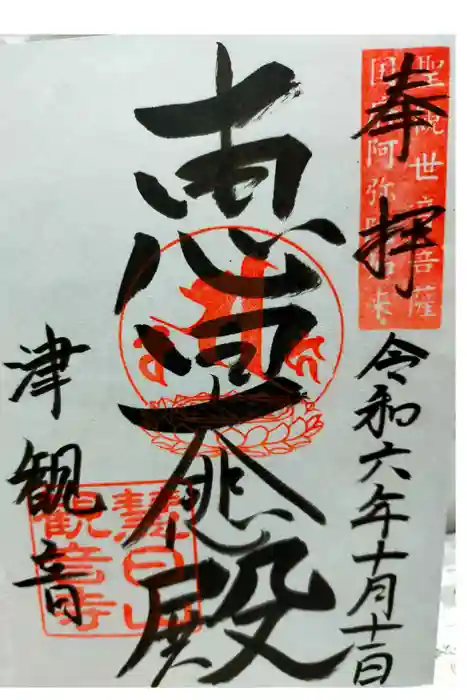 奉拝
聖観世音菩薩
国府阿弥陀如来
令和六年十月十一日
殿
津観音
慧日山
観音寺